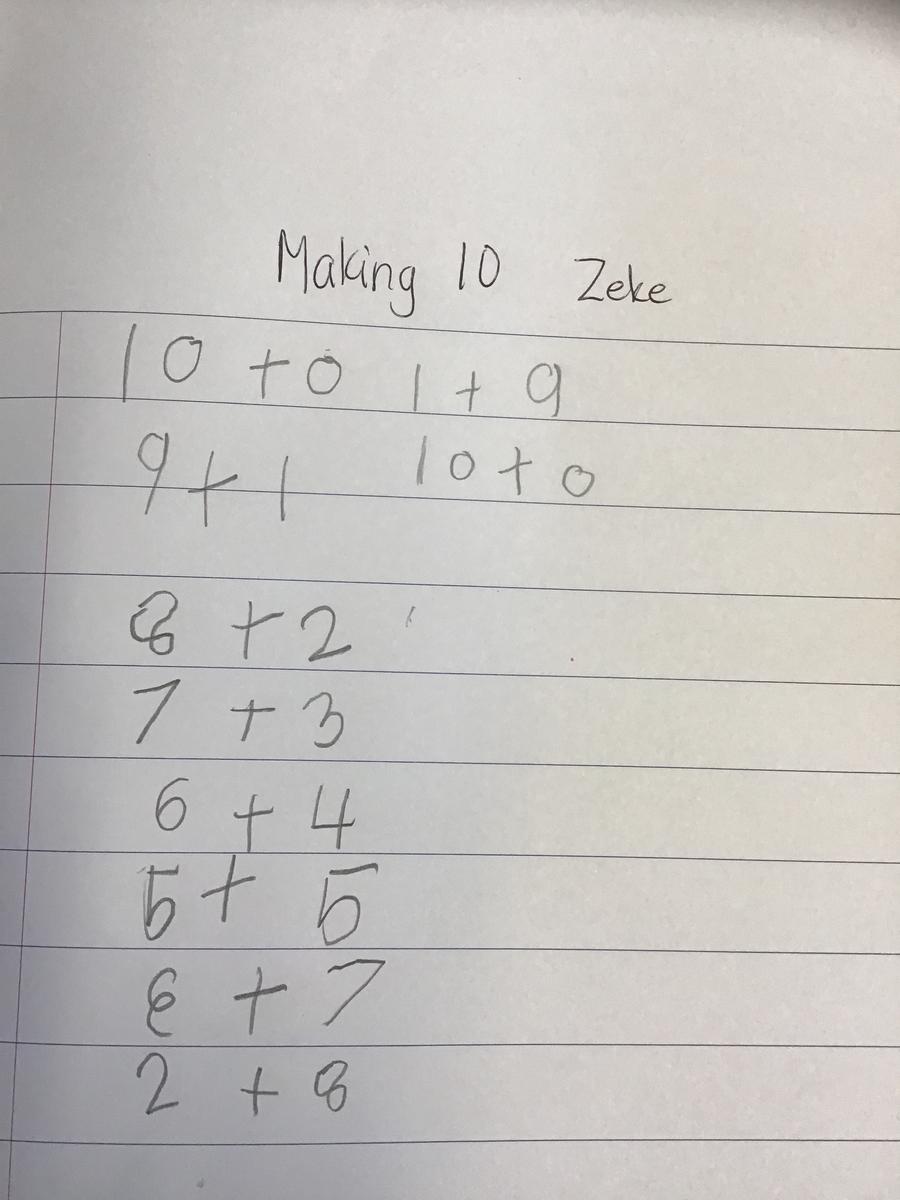 Making 10 Zeke
10 + 0 1 + 9
9 + 1 10 + 0
8 + 2
7 + 3
6 + 4
5 + 5
+ 7
2 + 8